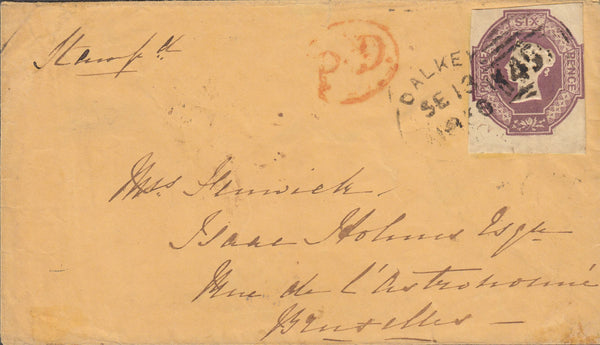 Stamp d
PD
DALKEY
SE 13
SIX
PENCE
POSTAGE
Mrs Fenwick
Isaac Holmes Esqre
Rue de l'Astronomie
Bruxelles